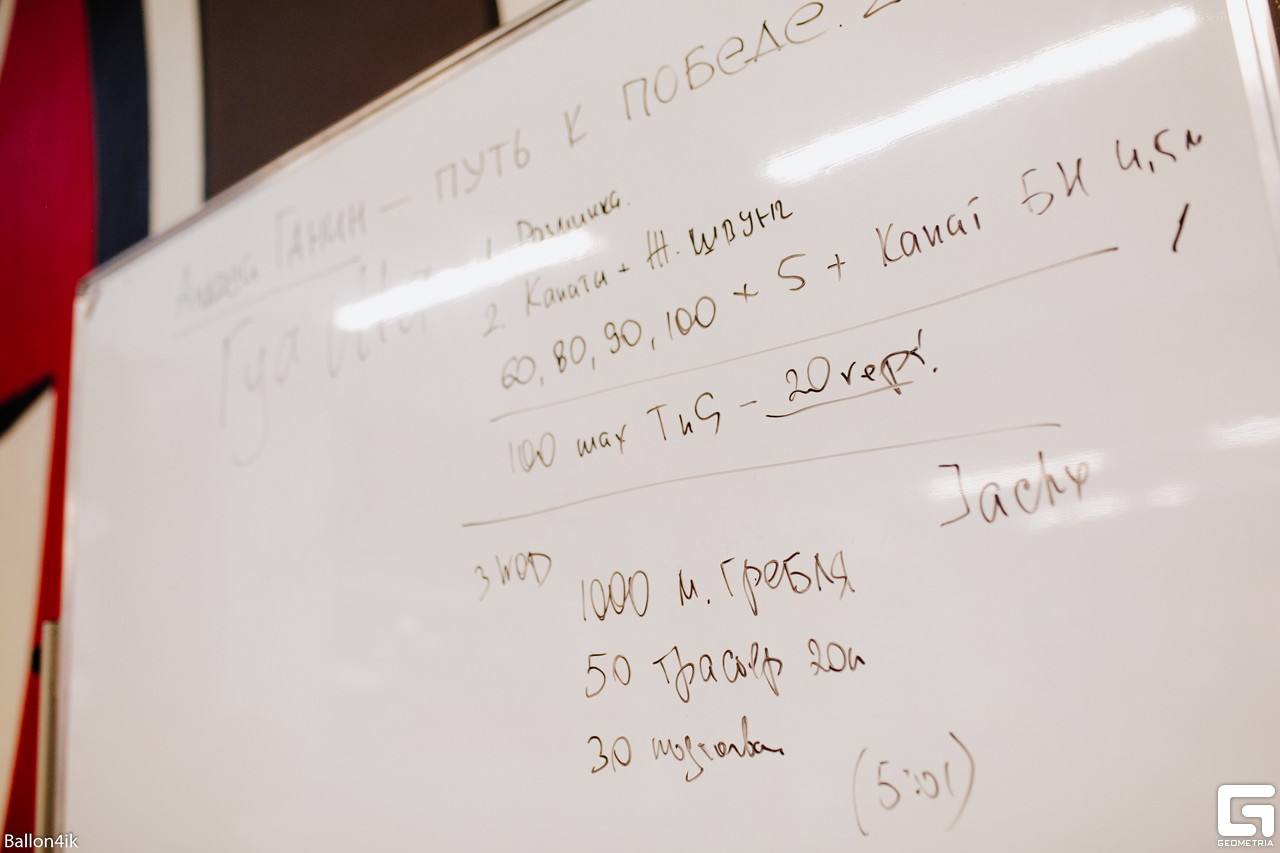 Андрей Ганин — ПУТЬ К ПОБЕДЕ.
1. Разминка.
2. Канаты + Ж. ШВУНГ
60, 80, 90, 100 × 5 + Канат БН 4,5м
100 max TnG - 20 reps!
Jacky
3 WOD
1000 м. ГРЕБЛЯ
50 трастер 20к
30 подтягиван
(5:01)
Ballon4ik
G
GEOMETRIA